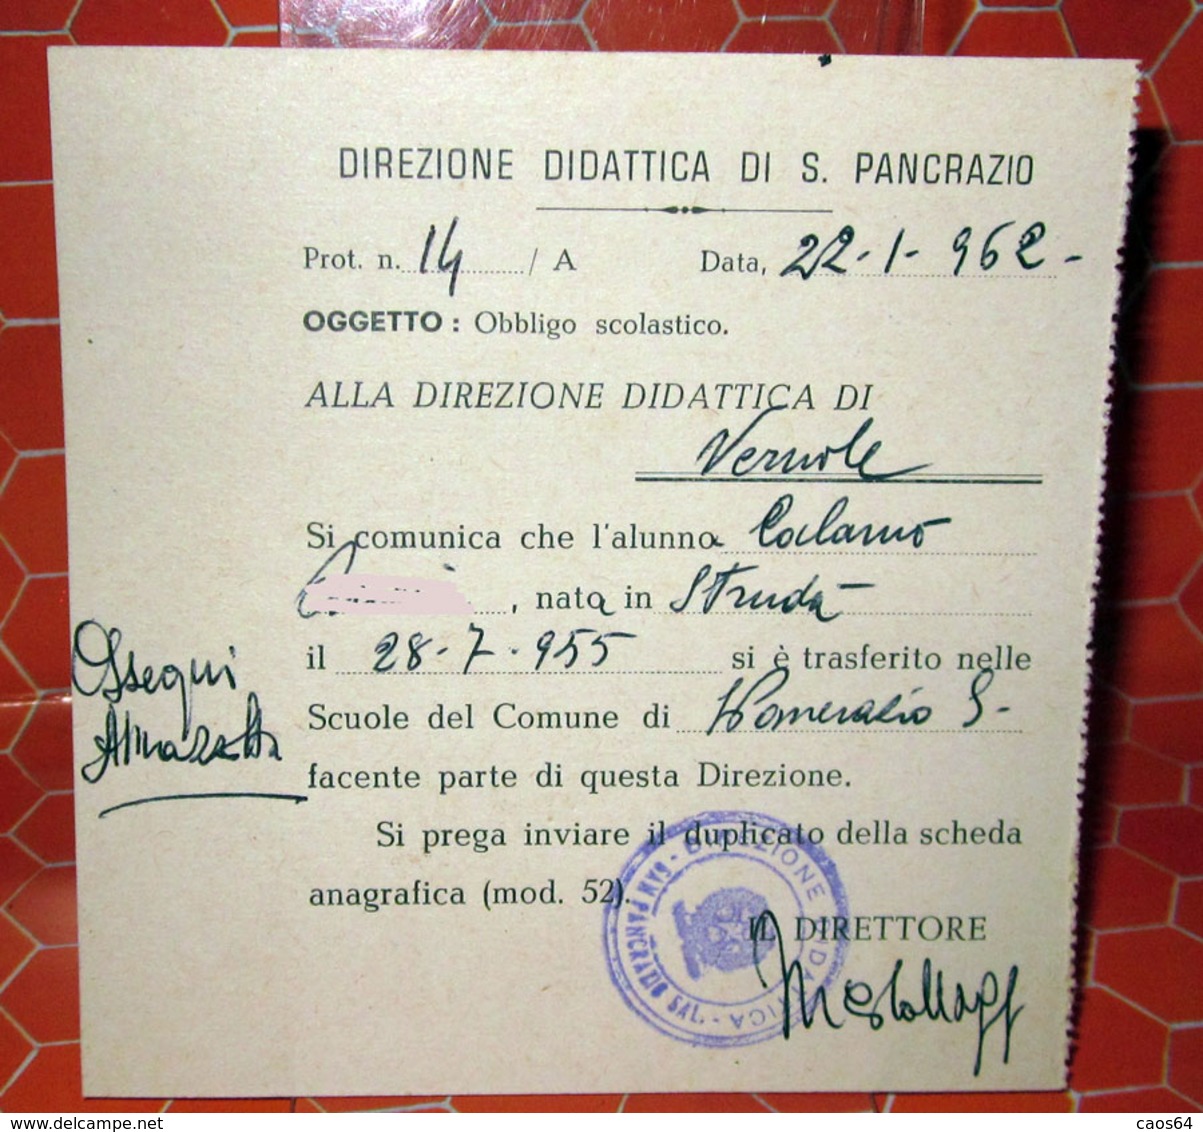 DIREZIONE DIDATTICA DI S. PANCRAZIO
Prot. n. 14 / A Data, 22-1-962-
OGGETTO : Obbligo scolastico.
ALLA DIREZIONE DIDATTICA DI
Vernole
Si comunica che l'alunna Calamo
, nata in Strudà
il 28-7-955 si è trasferito nelle
Scuole del Comune di S-
facente parte di questa Direzione.
Si prega inviare il duplicato della scheda
anagrafica (mod. 52).
IL DIRETTORE
Ossequi
DIREZIONE DIDATTICA - SAN PANCRAZIO SAL. -
delcampe.net
caos64